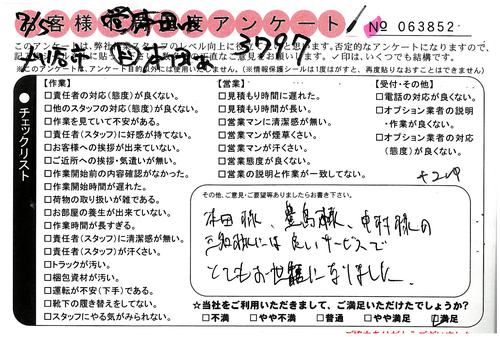 お客様満足度アンケート
№ 063852
このアンケートは、弊社
✓印は、いくつでも結構です。
※このアンケートは、アンケート目的以外には使用いたしません。(※情報保護シールは1度はがすと、再度貼りなおすことはできません)
チェックリスト
【作業】
□責任者の対応(態度)が良くない。
□他のスタッフの対応(態度)が良くない。
□作業を見ていて不安がある。
□責任者(スタッフ)に好感が持てない。
□お客様への挨拶が出来ていない。
□ご近所への挨拶・気遣いが無い。
□作業開始前の内容確認がなかった。
□作業開始時間が遅れた。
□荷物の取り扱いが雑である。
□お部屋の養生が出来ていない。
□作業時間が長すぎる。
□責任者(スタッフ)に清潔感が無い。
□責任者(スタッフ)が汗くさい。
□トラックが汚い。
□梱包資材が汚い。
□運転が不安(下手)である。
□靴下の履き替えをしてない。
□スタッフにやる気がみられない。
【営業】
□見積もり時間に遅れた。
□見積もり時間が長い。
□営業マンに清潔感が無い。
□営業マンが煙草くさい。
□営業マンが汗くさい。
□営業態度が良くない。
□営業の説明と作業が一致してない。
【受付・その他】
□電話の対応が良くない。
□オプション業者の説明
・作業が良くない。
□オプション業者の対応
(態度)が良くない。
その他、ご意見・ご要望等ありましたらお書き下さい。
本田様、豊島様、中村様の
三名様には良いサービスで
とてもお世話になりました。
☆当社をご利用いただきまして、ご満足いただけたでしょうか?
□不満 □やや不満 □普通 □やや満足 □満足